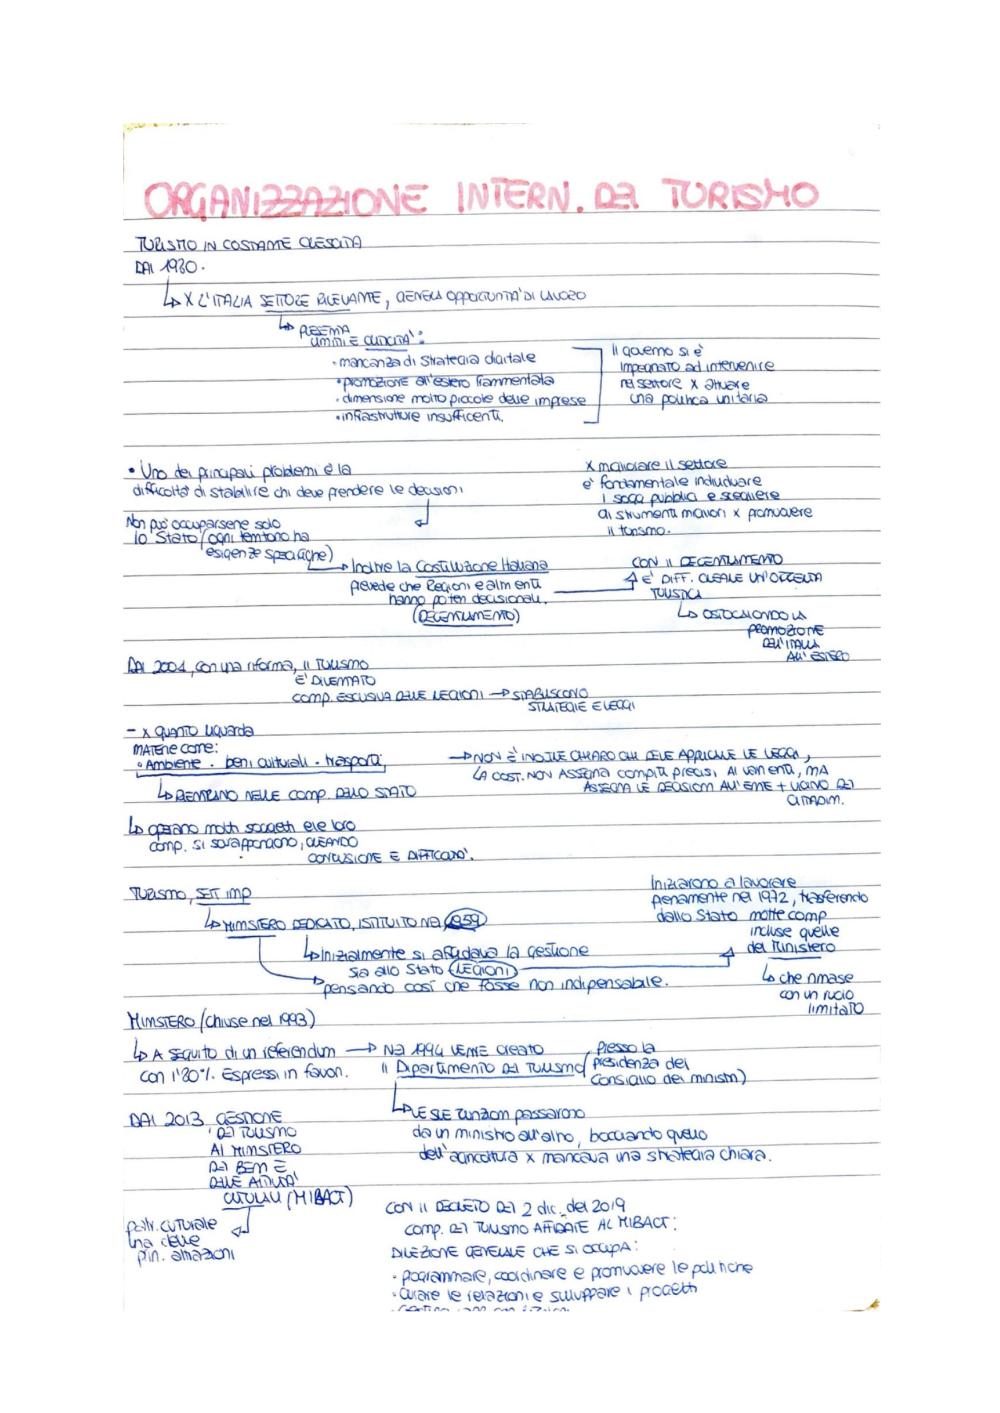 ORGANIZZAZIONE INTERN. DEL TURISMO
TURISMO IN COSTANTE CRESCITA
DAL 1980.
↳ X L'ITALIA SETTORE RILEVANTE, GENERA OPPORTUNITA' DI LAVORO
↳ PRESENTA
LIMITI E CRITICITA':
• mancanza di strategia digitale
• promozione all'estero frammentata
• dimensione molto piccole delle imprese
• infrastrutture insufficienti.
Il governo si è
impegnato ad intervenire
nel settore x attuare
una politica unitaria
• Uno dei principali problemi è la
difficoltà di stabilire chi deve prendere le decisioni
X migliorare il settore
è fondamentale individuare
i sogg pubblici e scegliere
gli strumenti migliori x promuovere
il turismo.
Non può occuparsene solo
lo Stato (ogni territorio ha
esigenze specifiche)
→ Inoltre la Costituzione Italiana
prevede che Regioni e altri enti
hanno poteri decisionali.
(DECENTRAMENTO)
CON IL DECENTRAMENTO
E' DIFF. CREARE UN'OFFERTA
TURISTICA
↳ OSTACOLANDO LA
PROMOZIONE
DELL'ITALIA
ALL'ESTERO
DAL 2001, con una riforma, il TURISMO
E' DIVENTATO
COMP. ESCLUSIVA DELLE REGIONI → STABILISCONO
STRATEGIE E LEGGI
- X QUANTO RIGUARDA
MATERIE come:
• Ambiente • beni culturali • trasporti
↳ RIENTRANO NELLE COMP. DELLO STATO
→ NON È INOLTRE CHIARO CHI DEVE APPLICARE LE LEGGI,
LA COST. NON ASSEGNA COMPITI PRECISI AI VARI ENTI, MA
ASSEGNA LE DECISIONI ALL'ENTE + VICINO AI
CITTADINI.
↳ operano molti soggetti e le loro
comp. si sovrappongono, CREANDO
CONFUSIONE E DIFFICOLTA'.
TURISMO, SETT IMP
↳ MINISTERO DEDICATO, ISTITUITO NEL 1959
↳ Inizialmente si affidava la gestione
sia allo Stato (REGIONI)
pensando così che fosse non indispensabile.
Iniziarono a lavorare
pienamente nel 1972, trasferendo
dallo Stato molte comp
incluse quelle
del Ministero
↳ che rimase
con un ruolo
limitato
MINISTERO (chiuse nel 1993)
↳ A SEGUITO di un referendum → NEL 1994 VENNE creato
con l'80% Espressi in favor. il Dipartimento DEL TURISMO (presso la
presidenza del
Consiglio dei ministri)
↳ LE SUE funzioni passarono
da un ministro all'altro, bocciando quello
dell'agricoltura x mancava una strategia chiara.
DAL 2013 GESTIONE
DEL TURISMO
AL MINISTERO
DEI BENI E
DELLE ATTIVITA'
CULTURALI (MIBACT)
patr. culturale
una delle
prin. attrazioni
CON IL DECRETO DEL 2 dic. del 2019
COMP. DEL TURISMO AFFIDATE AL MIBACT:
DIREZIONE GENERALE CHE SI OCCUPA:
• programmare, coordinare e promuovere le politiche
• curare le relazioni e sviluppare i progetti